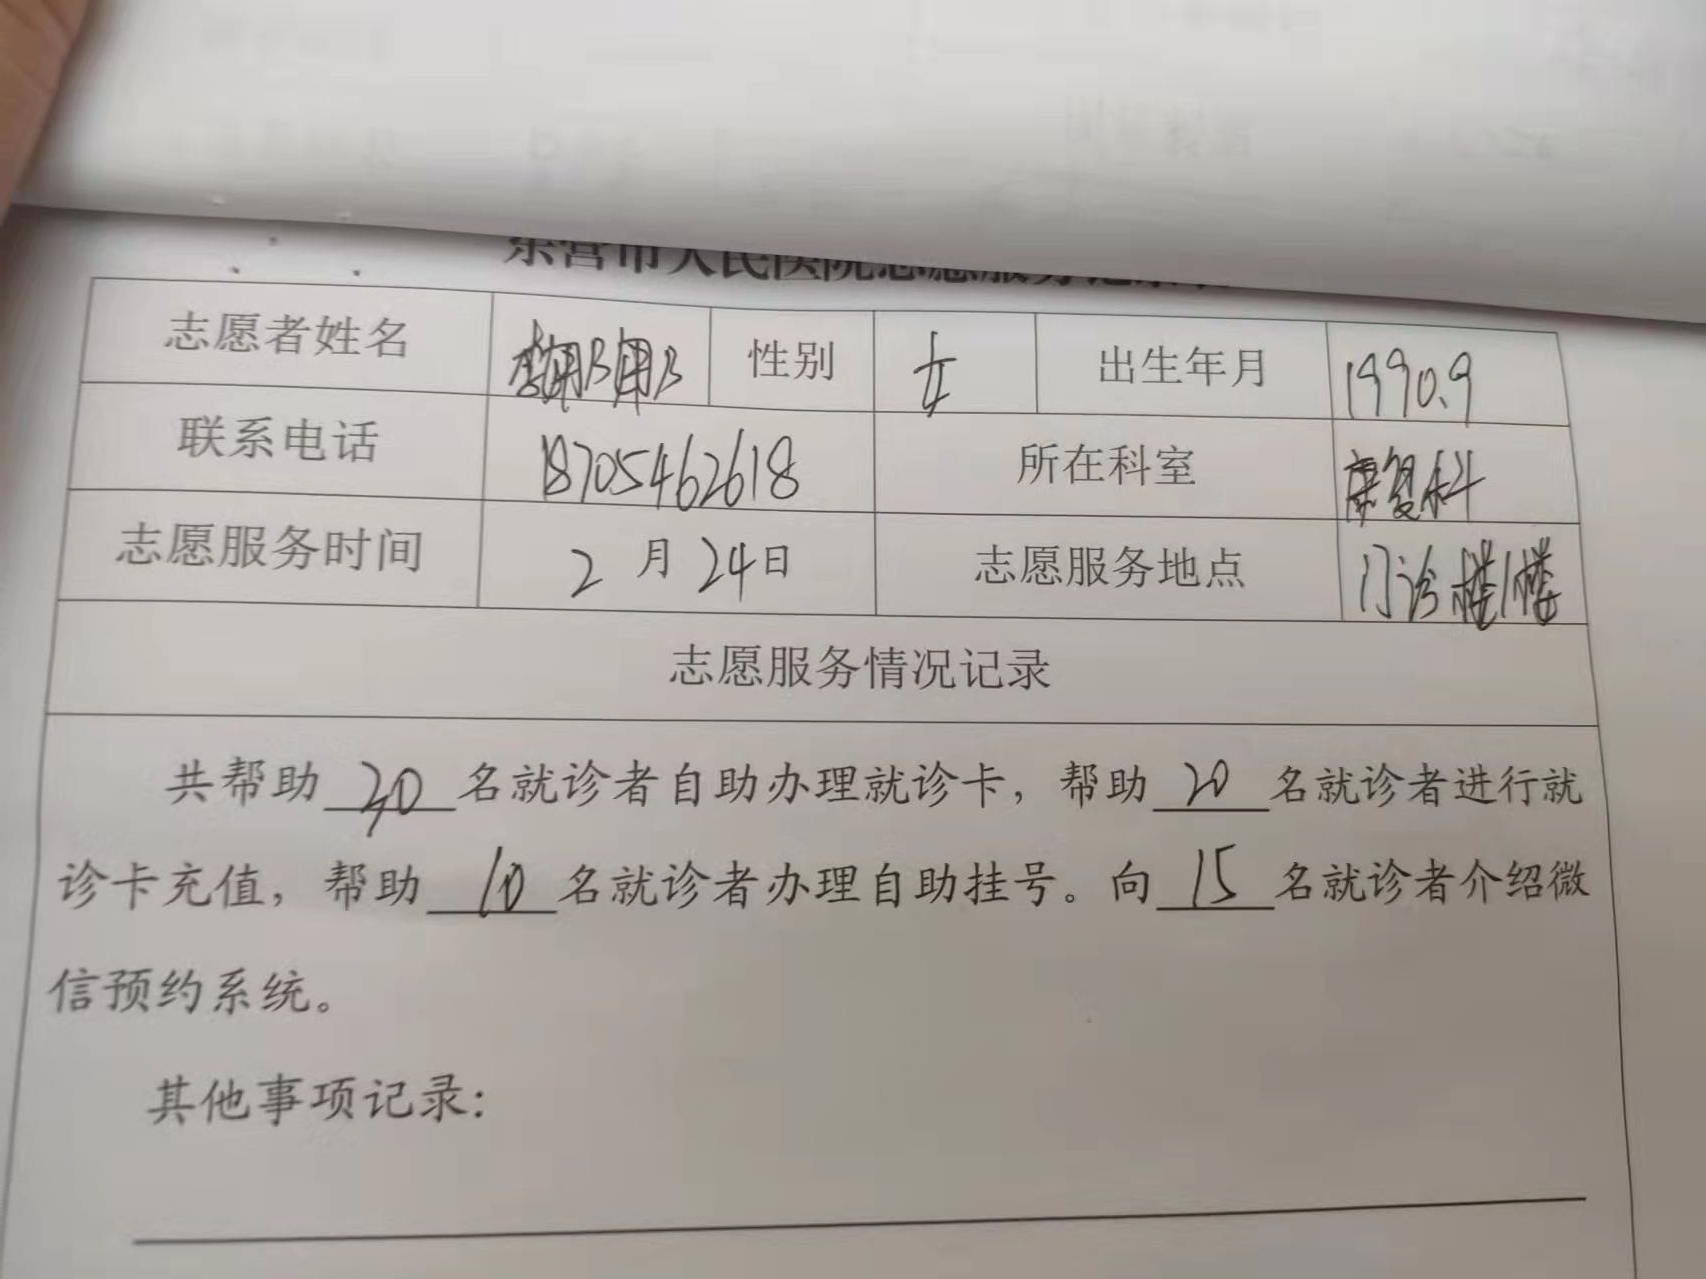 东营市人民医院志愿服务记录
志愿者姓名 李娜娜 性别 女 出生年月 1990.9
联系电话 18705462618 所在科室 康复科
志愿服务时间 2月24日 志愿服务地点 门诊楼1楼
志愿服务情况记录
共帮助 20 名就诊者自助办理就诊卡，帮助 20 名就诊者进行就
诊卡充值，帮助 10 名就诊者办理自助挂号。向 15 名就诊者介绍微
信预约系统。
其他事项记录：